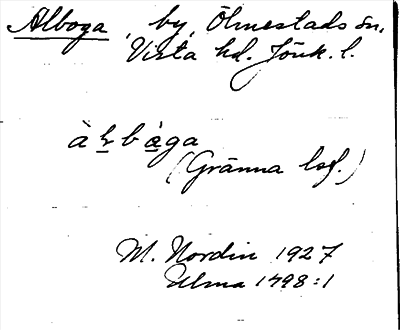 Alboga, by, Ölmestads sn,
Vista hd. Jönk. l.
(Gränna lsf.)
M. Nordin 1927
Ulma 1798:1